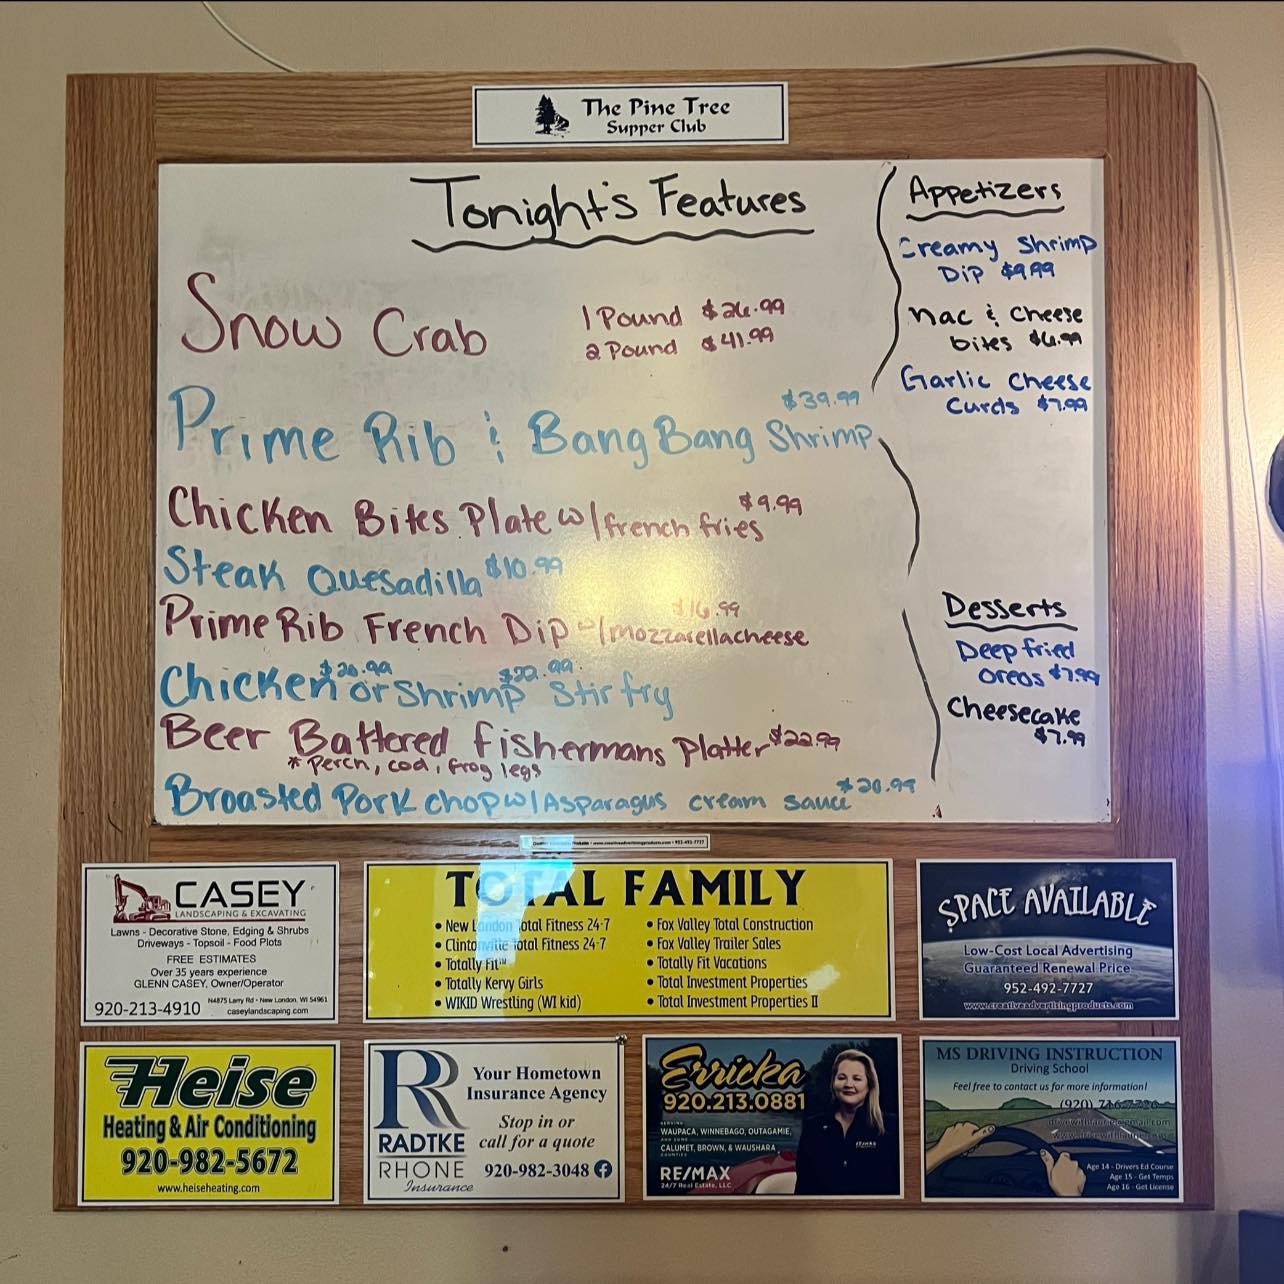 The Pine Tree
Supper Club
Tonight's Features
Snow Crab
1 Pound $26.99
2 Pound $41.99
$39.99
Prime Rib & Bang Bang Shrimp
Chicken Bites Plate w/french fries $9.99
Steak Quesadilla $10.99
$16.99
Prime Rib French Dip w/mozzarella cheese
$20.99 $22.99
Chicken or Shrimp Stir fry
Beer Battered fishermans Platter $22.99
* Perch, cod, frog legs
Broasted Pork chop w/Asparagus cream sauce $20.99
Appetizers
Creamy Shrimp
Dip $9.99
mac & cheese
bites $6.99
Garlic Cheese
Curds $7.99
Desserts
Deep fried
oreos $7.99
Cheesecake
$7.99
www.creativeadvertisingproducts.com • 952-492-7727
CASEY
LANDSCAPING & EXCAVATING
Lawns - Decorative Stone, Edging & Shrubs
Driveways - Topsoil - Food Plots
FREE ESTIMATES
Over 35 years experience
GLENN CASEY, Owner/Operator
920-213-4910
N4875 Larry Rd • New London, WI 54961
caseylandscaping.com
TOTAL FAMILY
• New London Total Fitness 24-7
• Clintonville Total Fitness 24-7
• Totally Fit™
• Totally Kervy Girls
• WIKID Wrestling (WI kid)
• Fox Valley Total Construction
• Fox Valley Trailer Sales
• Totally Fit Vacations
• Total Investment Properties
• Total Investment Properties II
SPACE AVAILABLE
Low-Cost Local Advertising
Guaranteed Renewal Price
952-492-7727
www.creativeadvertisingproducts.com
Heise
Heating & Air Conditioning
920-982-5672
www.heiseheating.com
R
RADTKE
RHONE
Insurance
Your Hometown
Insurance Agency
Stop in or
call for a quote
920-982-3048
Erricka
920.213.0881
SERVING
WAUPACA, WINNEBAGO, OUTAGAMIE,
AND SOME
CALUMET, BROWN, & WAUSHARA
COUNTIES
RE/MAX
24/7 Real Estate, LLC
MS DRIVING INSTRUCTION
Driving School
Feel free to contact us for more information!
(920)
Age 14 - Drivers Ed Course
Age 15 - Get Temps
Age 16 - Get License